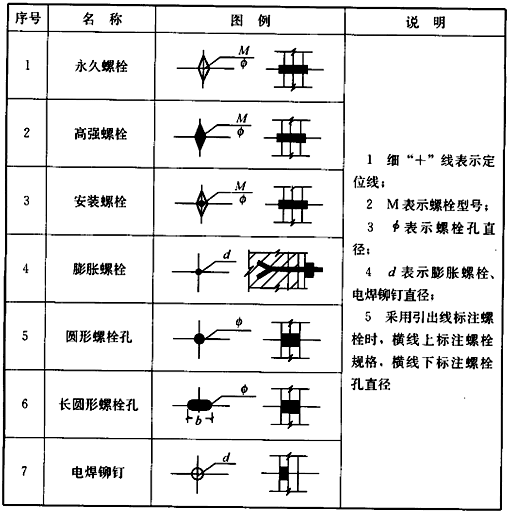 序号 名 称 图 例 说 明
1 永久螺栓 M
ϕ
2 高强螺栓 M
ϕ
3 安装螺栓 M
ϕ
4 膨胀螺栓 d
5 圆形螺栓孔 ϕ
6 长圆形螺栓孔 ϕ
b
7 电焊铆钉 d
1 细“+”线表示定
位线;
2 M表示螺栓型号;
3 ϕ表示螺栓孔直
径;
4 d表示膨胀螺栓、
电焊铆钉直径;
5 采用引出线标注螺
栓时,横线上标注螺栓
规格,横线下标注螺栓
孔直径